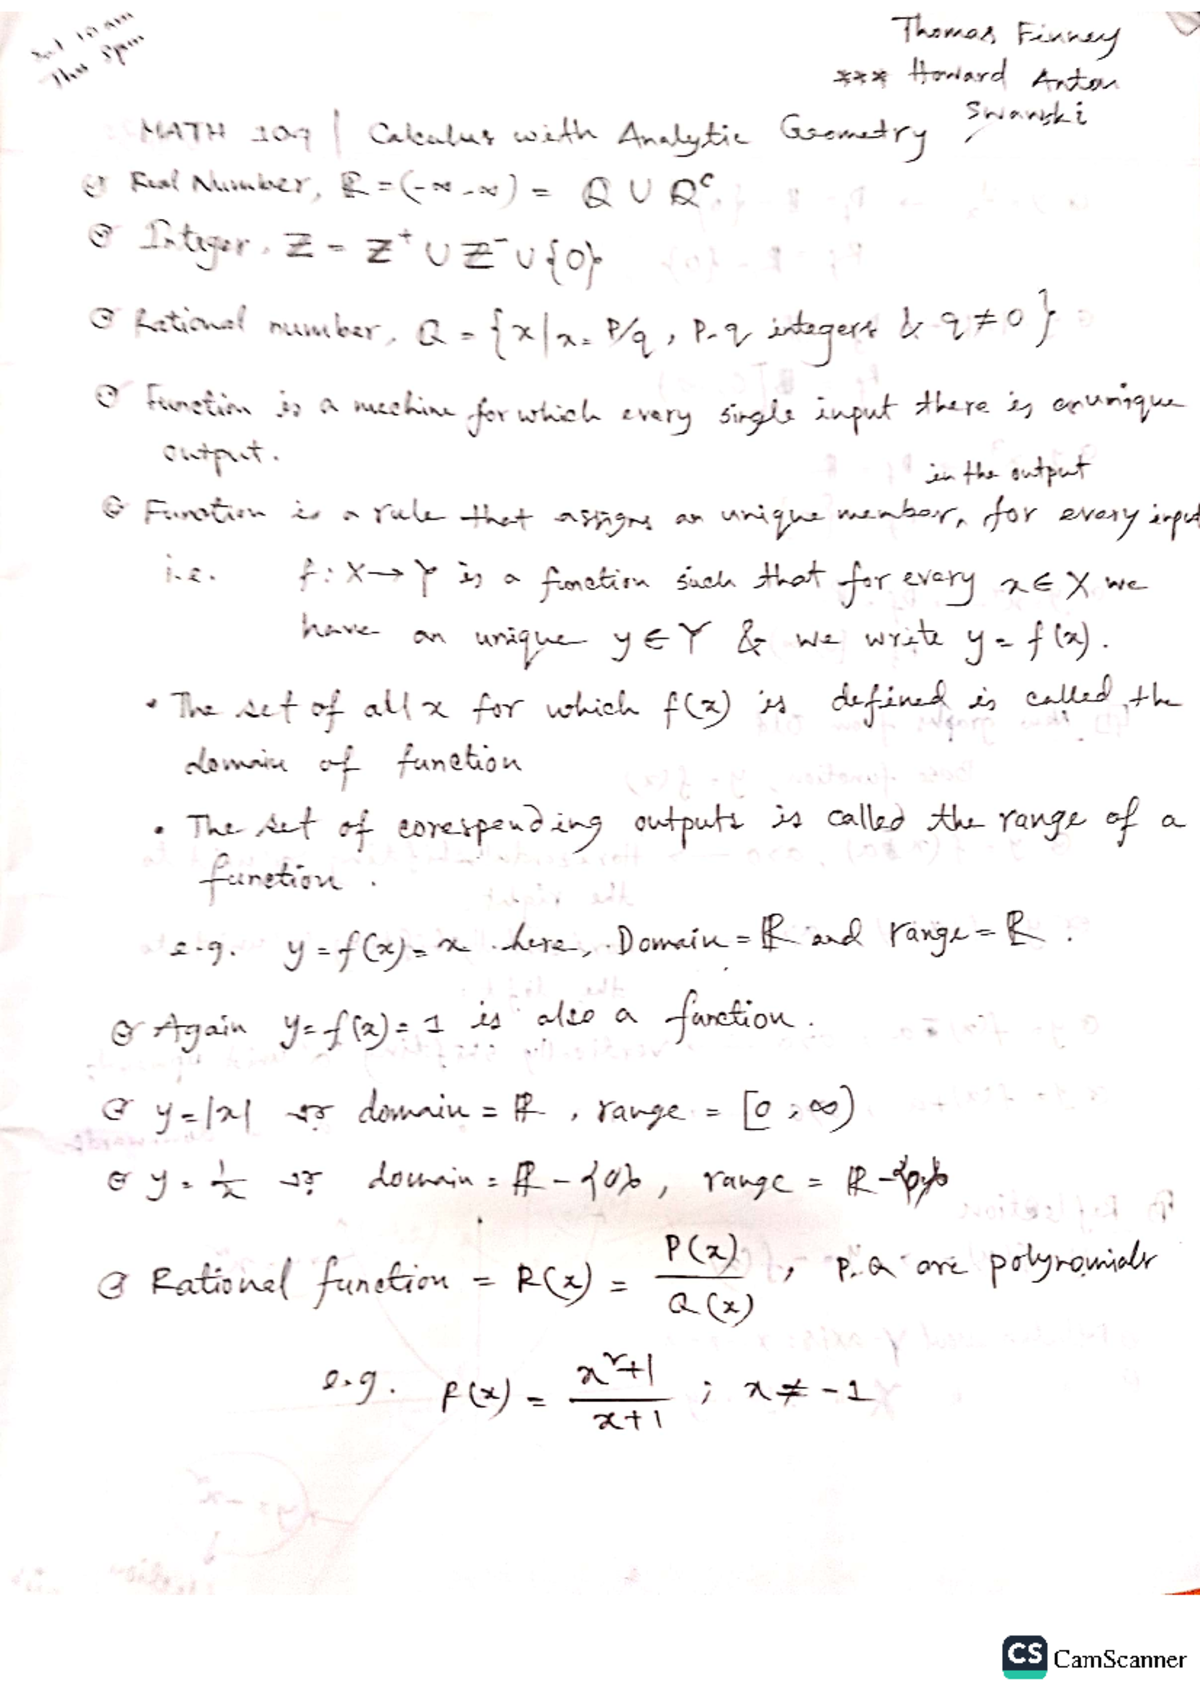 Sat 10 am
Thu 8pm
Thomas Finney
*** Howard Anton
Swawski
MATH 109 | Calculus with Analytic Geometry
Real Number, ℝ = (-∞ - ∞) = Q ∪ Q^c
Integer, Z = Z⁺ ∪ Z⁻ ∪ {0}
Rational number, Q = {x | x = P/q, P, q integers & q ≠ 0}
Function is a mechine for which every single input there is an unique
output.
in the output
Function is a rule that assigns an unique member, for every input
i.e. f : X → Y is a function such that for every x ∈ X we
have an unique y ∈ Y & we write y = f(x).
• The set of all x for which f(x) is defined is called the
domain of function
• The set of coresponding outputs is called the range of a
function.
e.g. y = f(x) = x. here, Domain = ℝ and range = ℝ.
Again y = f(x) = 1 is also a function.
y = |x| domain = ℝ, range = [0, ∞)
y = 1/x domain = ℝ - {0}, range = ℝ - {0}
Rational function = R(x) = P(x)/Q(x), P, Q are polynomials
e.g. f(x) = (x²+1)/(x+1) ; x ≠ -1
CS CamScanner